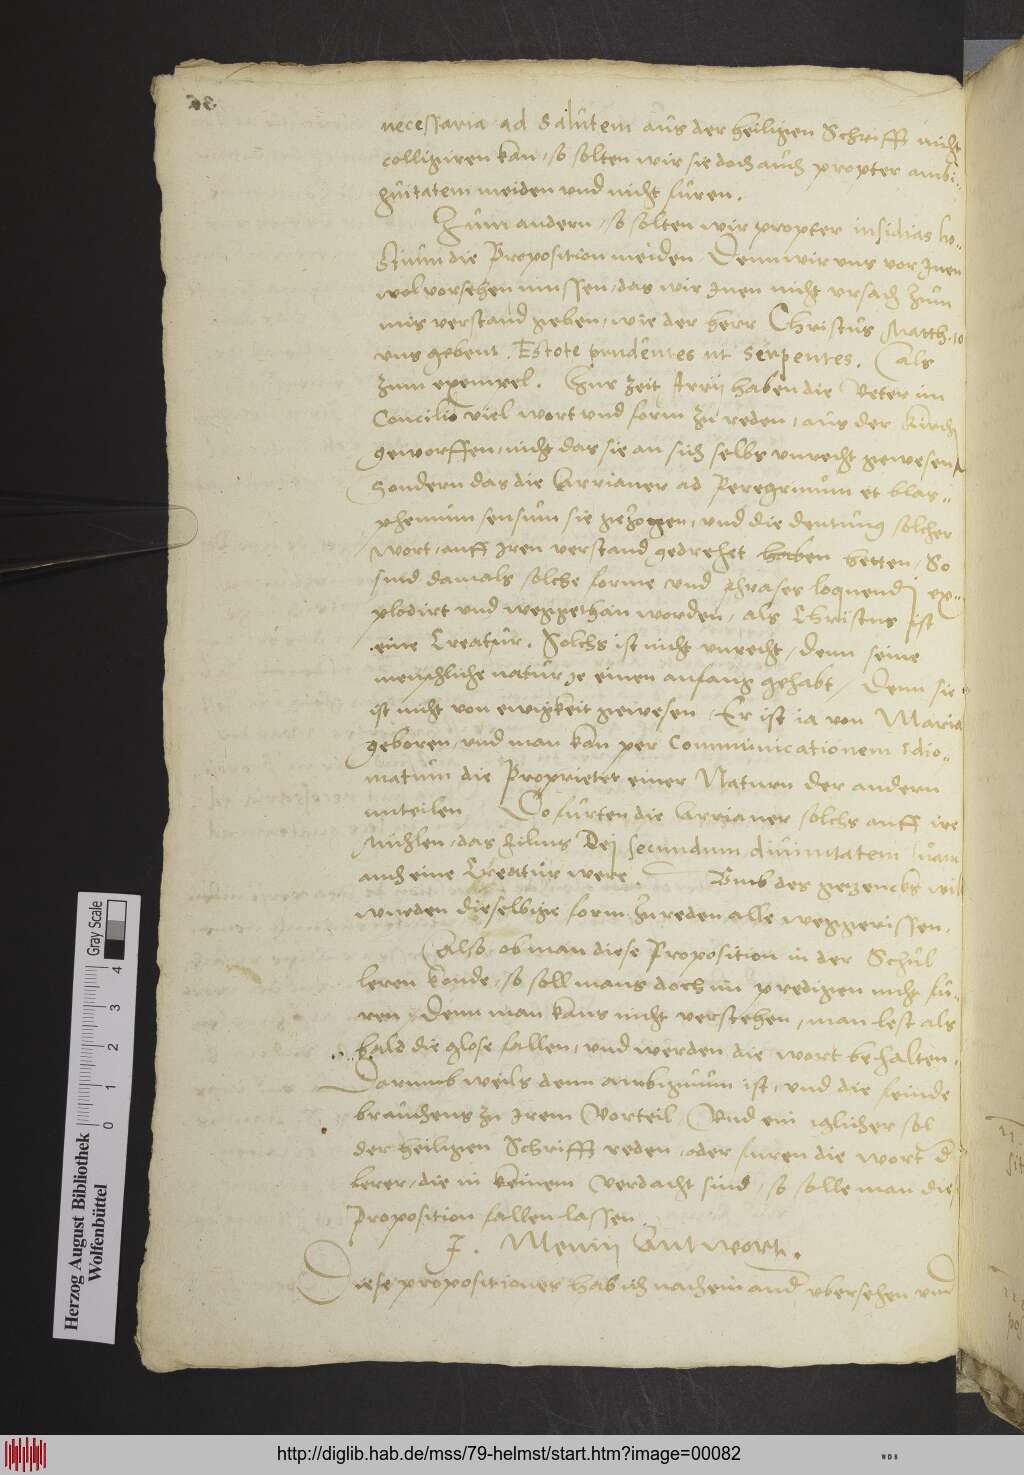 necessaria ad Salutem aus der heiligen Schrifft nicht
colligiren kan, so solten wir sie doch auch propter ambi-
guitatem meiden und nicht füren.
Zum andern, so solten wir propter insidias ho-
stium die Proposition meiden, Denn wir uns vor Inen
wol vorsehen müssen, das wir Inen nicht ursach zum
mis verstand geben, wie der herr Christus Matth. 10
uns gebeut. Estote prudentes ut serpentes. Als
zum exempel. Zur Zeit Arrij haben die Veter im
Concilio viel wort und form zu reden, aus der Kirch
geworffen, nicht das sie an sich selbs unrecht gewesen,
Sondern das die Arrianer ad Peregrinum et blas-
phemum sensum sie gezogen, und die deutung solcher
wort, auff Iren verstand gedrehet haben hetten, So
sind damals solche forme und phrases loquendj ex-
plodirt und weggethan worden, als Christus ist
eine Creatur. Solchs ist nicht unrecht, denn seine
menschliche natur je einen anfang gehabt, Denn sie
ist nicht von ewigkeit gewesen, Er ist ia von Maria
geboren, und man kan per Communicationem Idio-
matum die Proprietet einer Naturn der andern
mitteilen. Do fürten die Arrianer solchs auff ire
Mühlen, das filius Dej secundum divinitatem
auch eine Creatur were. Umb des gezencks
wurden dieselbige form zu reden alle weggerissen.
Also, ob man diese Proposition in der Schul
leren konde, so soll mans doch im predigen nicht fü-
ren, Denn man kans nicht verstehen, man lest als
bald die glose fallen, und werden die wort behalten.
Darumb weils denn ambiguum ist, und die feinde
brauchens zu Irem Vorteil, Und ein iglicher sol
der heiligen Schrifft reden, oder furen die wort d
lerer, die in keinem verdacht sind, so solle man die
Proposition fallen lassen.
I. Menij Antwort.
Diese propositiones hab ich nach ein and ubersehen und
Herzog August Bibliothek
Wolfenbüttel
0 1 2 3 4
Gray Scale
http://diglib.hab.de/mss/79-helmst/start.htm?image=00082